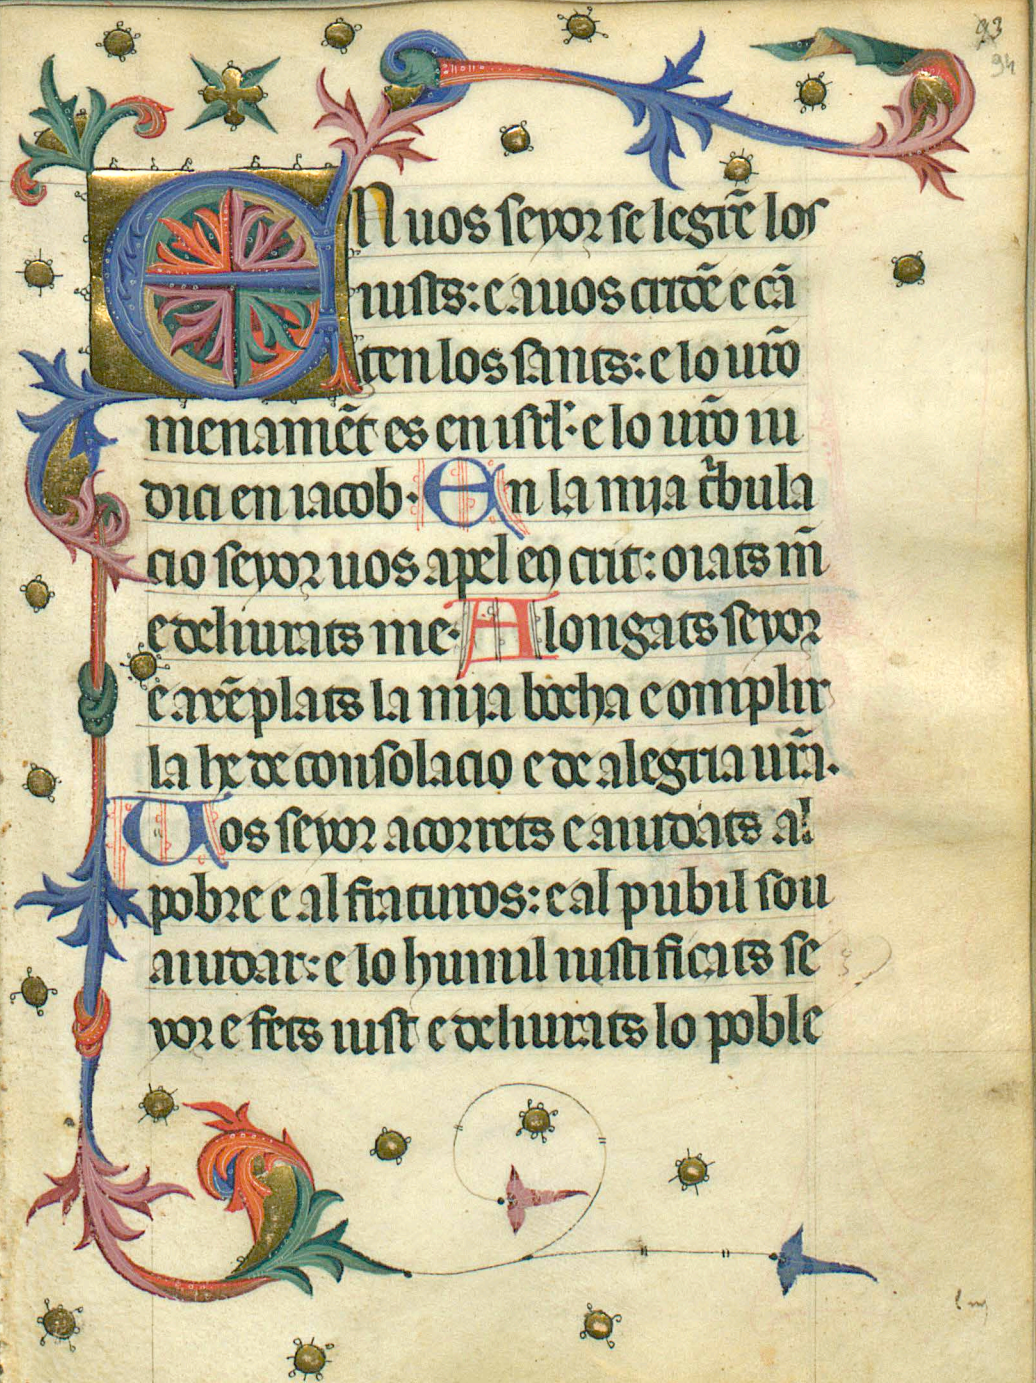 93
94
EN uos seyor se legrē los
iusts: e a uos criden e cā
ten los sants: e lo ur̄o
menamēt es en isrl: e lo ur̄o iu
dici en iacob. En la mija tͥbula
cio seyor uos apel en crit: oiats m̄
e deliurats me. Alongats seyor
e axēplats la mija bocha e omplir
la he de consolacio e de alegria ur̄a.
Uos seyor acorrets e aiudats al
pobre e al fraturos: e al pubil sou
aiudar: e lo humil iustificats se
yor e fets iust e deliurats lo poble